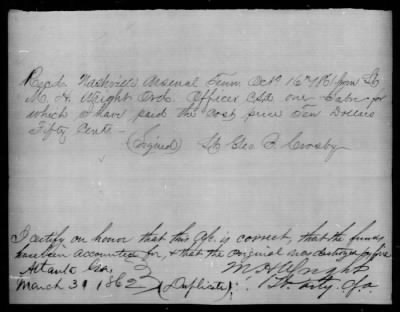 Recd. Nashville Arsenal Tenn Octo 16th 1861 from Lt
M. H. Wright Ord. Officer CSA one Sabre for
which I have paid the cost price Ten Dollars
Fifty Cents —
(Signed) Lt Geo. F. Crosby
I certify on honor that this a/c is correct, that the funds
have been accounted for, & that the original was destroyed by fire
Atlanta Ga,
March 31 1862 (Duplicate) M H Wright